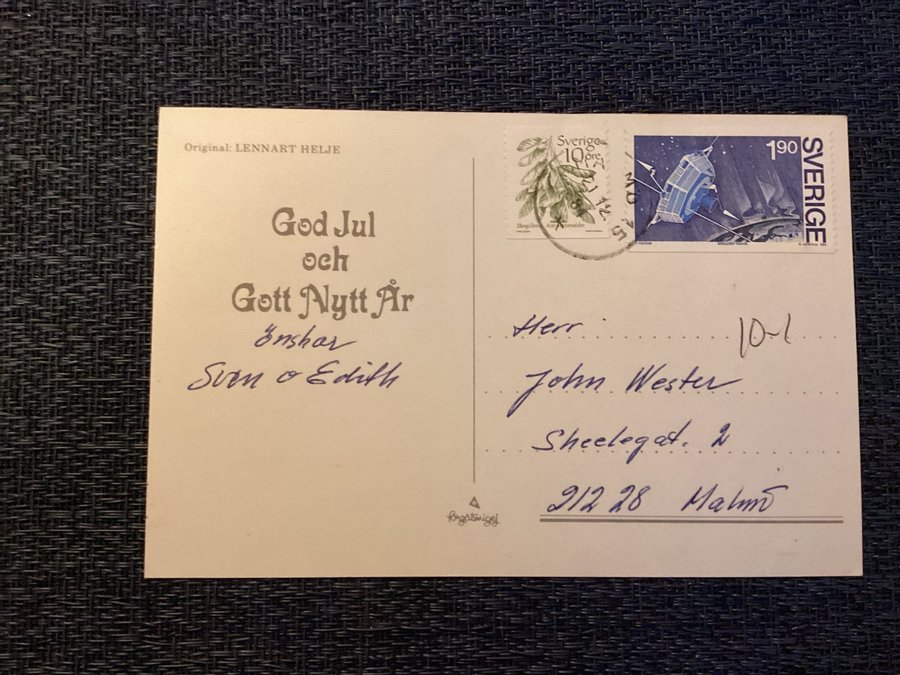 Original: LENNART HELJE
God Jul
och
Gott Nytt År
önskar
Sven o Edith
Sverige
10 öre
1 90
SVERIGE
Herr
10-1
John Wester
Sheelegat. 2
212 28 Malmö